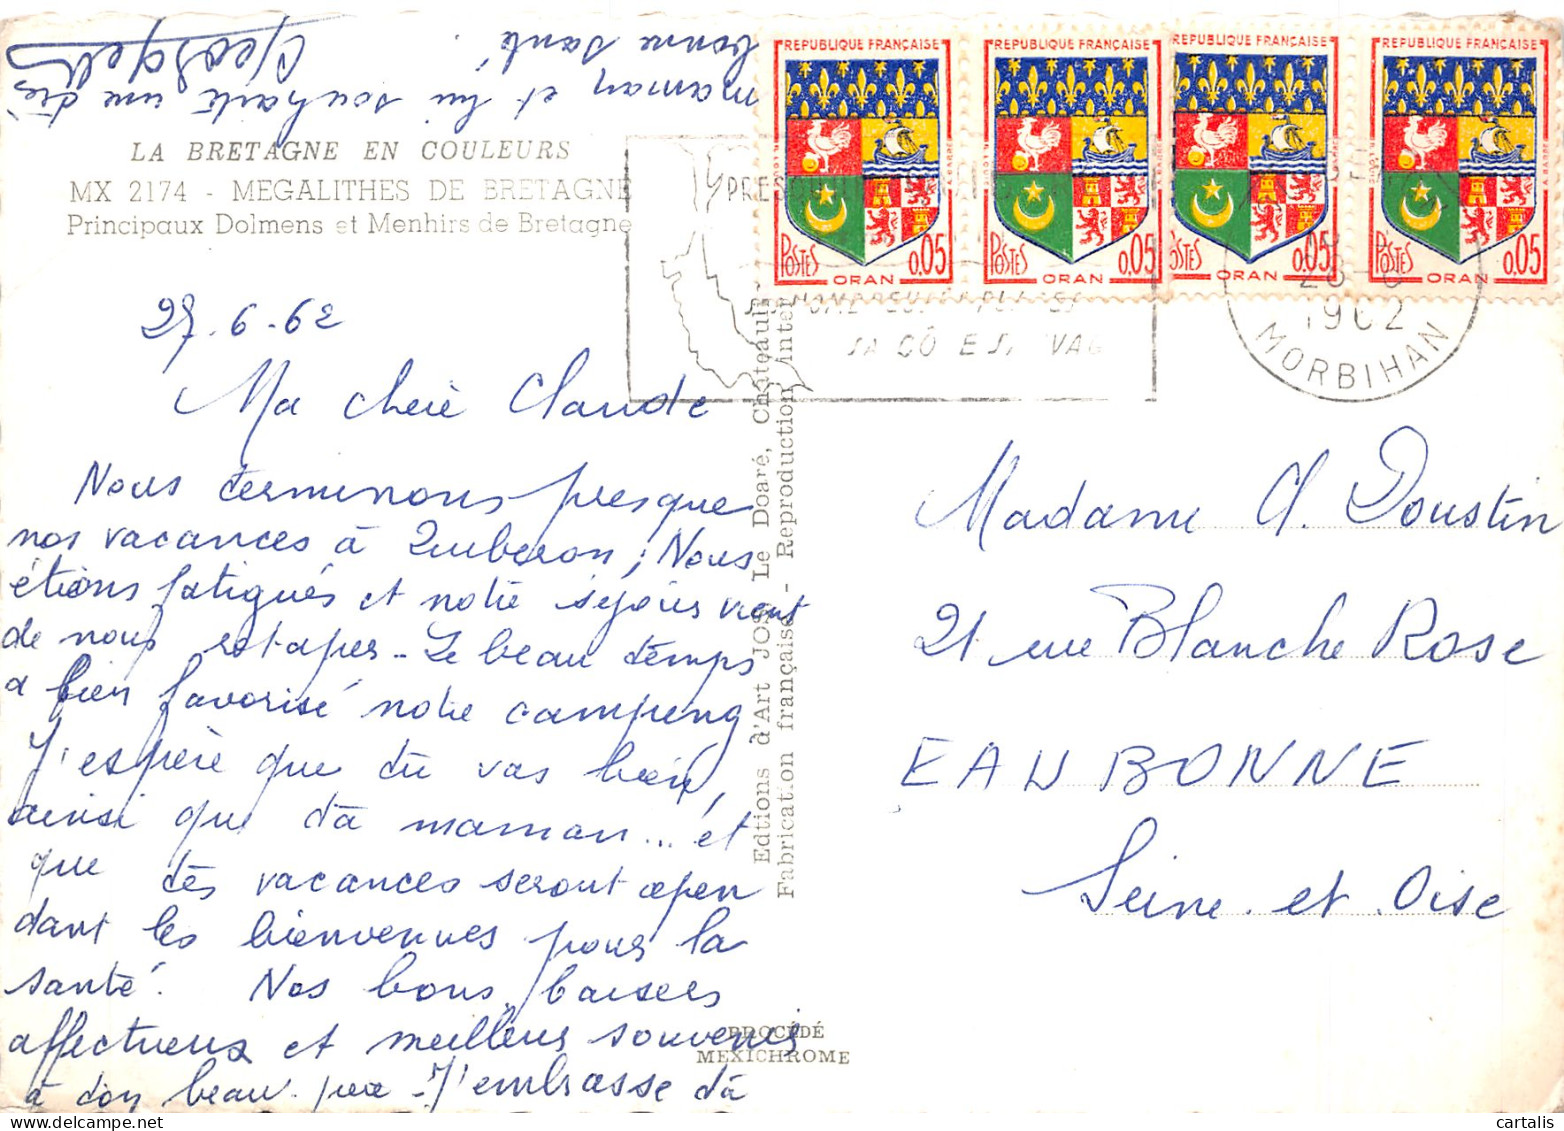 LA BRETAGNE EN COULEURS
MX 2174 - MEGALITHES DE BRETAGNE
Principaux Dolmens et Menhirs de Bretagne
27.6.62
Ma chère Claude
Nous terminons presque
nos vacances à Quiberon, Nous
étions fatigués et notre séjour vient
de nous retaper - Le beau temps
a bien favorisé notre camping
J'espère que tu vas bien,
ainsi que ta maman... et
que tes vacances seront cepen
dant les bienvenues pour la
santé. Nos bons baisers
affectueux et meilleurs souvenirs
à ton beau-père - J'embrasse ta
maman et lui souhaite une très
bonne santé.
Georges
Edtions d'Art JOS Le Doaré, Châteaulin
Fabrication française - Reproduction inter
PROCÉDÉ
MEXICHROME
REPUBLIQUE FRANÇAISE
POSTES
0,05
ORAN
REPUBLIQUE FRANÇAISE
POSTES
0,05
ORAN
REPUBLIQUE FRANÇAISE
POSTES
0,05
ORAN
REPUBLIQUE FRANÇAISE
POSTES
0,05
ORAN
1962
MORBIHAN
Madame Cl. Doustin
21 rue Blanche Rose
EAUBONNE
Seine et Oise
cartalis